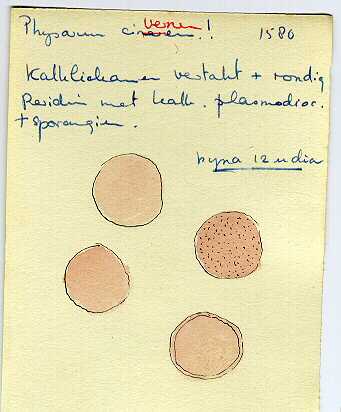 Physarum cinereum!! vernum 1580
Kalklichamen vertakt + rondig
Peridium met kalk. plasmodioc.
+ sporangien.
bijna 12 u dia